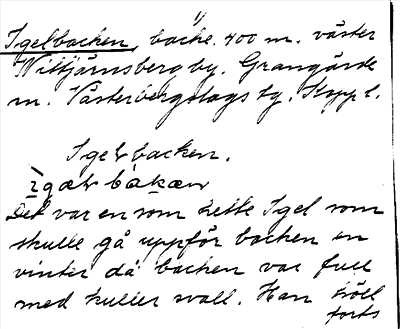 Igelbacken, backe. 400 m. väster
Nittjärnsberg by. Grangärde
m. Västerbergslags tg. Kopp l.
Igelbacken.
ìgæɫ bàkæn
Det var en som hette Igel som
skulle gå uppför backen en
vinter då backen var full
med kuller wall. Han höll
forts